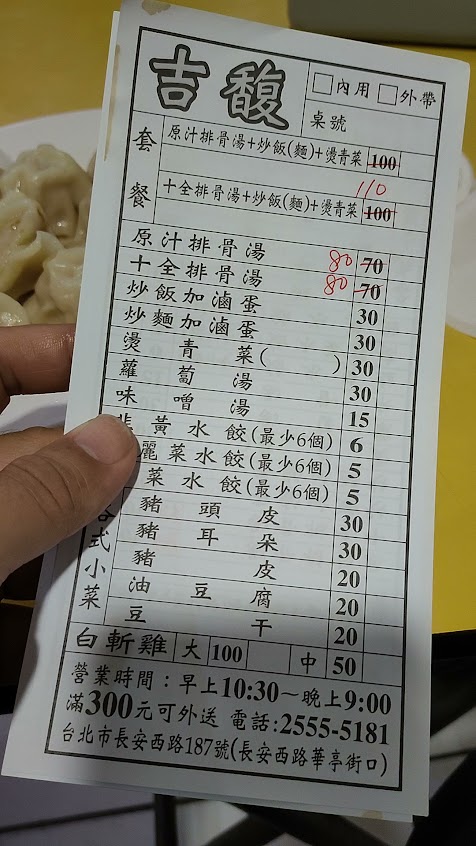 吉馥
□內用 □外帶
桌號
套餐
原汁排骨湯+炒飯(麵)+燙青菜 100
110
十全排骨湯+炒飯(麵)+燙青菜 100
原汁排骨湯 80 70
十全排骨湯 80 70
炒飯加滷蛋 30
炒麵加滷蛋 30
燙青菜( ) 30
蘿蔔湯 30
味噌湯 15
韭黃水餃(最少6個) 6
麗菜水餃(最少6個) 5
菜水餃(最少6個) 5
各式小菜
豬頭皮 30
豬耳朵 30
豬皮 20
油豆腐 20
豆干 20
白斬雞 大 100 中 50
營業時間:早上10:30~晚上9:00
滿300元可外送 電話:2555-5181
台北市長安西路187號(長安西路華亭街口)